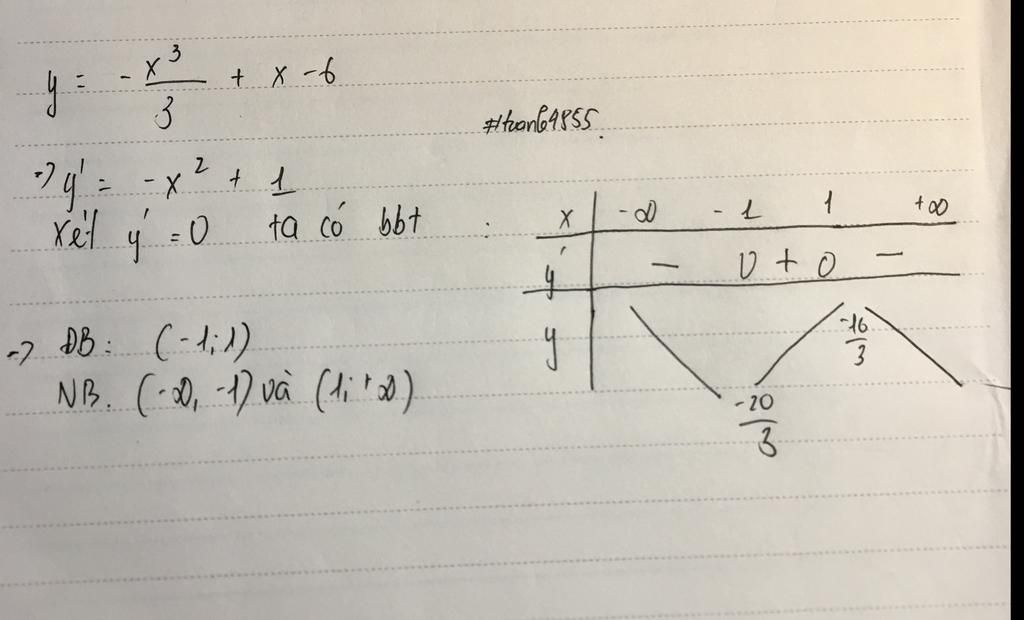 y = -x³/3 + x - 6
#tuan64855.
=> y' = -x² + 1
Xét y' = 0 ta có bbt :
x | -∞ -1 1 +∞
y' | - 0 + 0 -
y | -20/3 -16/3
=> ĐB: (-1; 1)
NB. (-∞, -1) và (1; +∞)